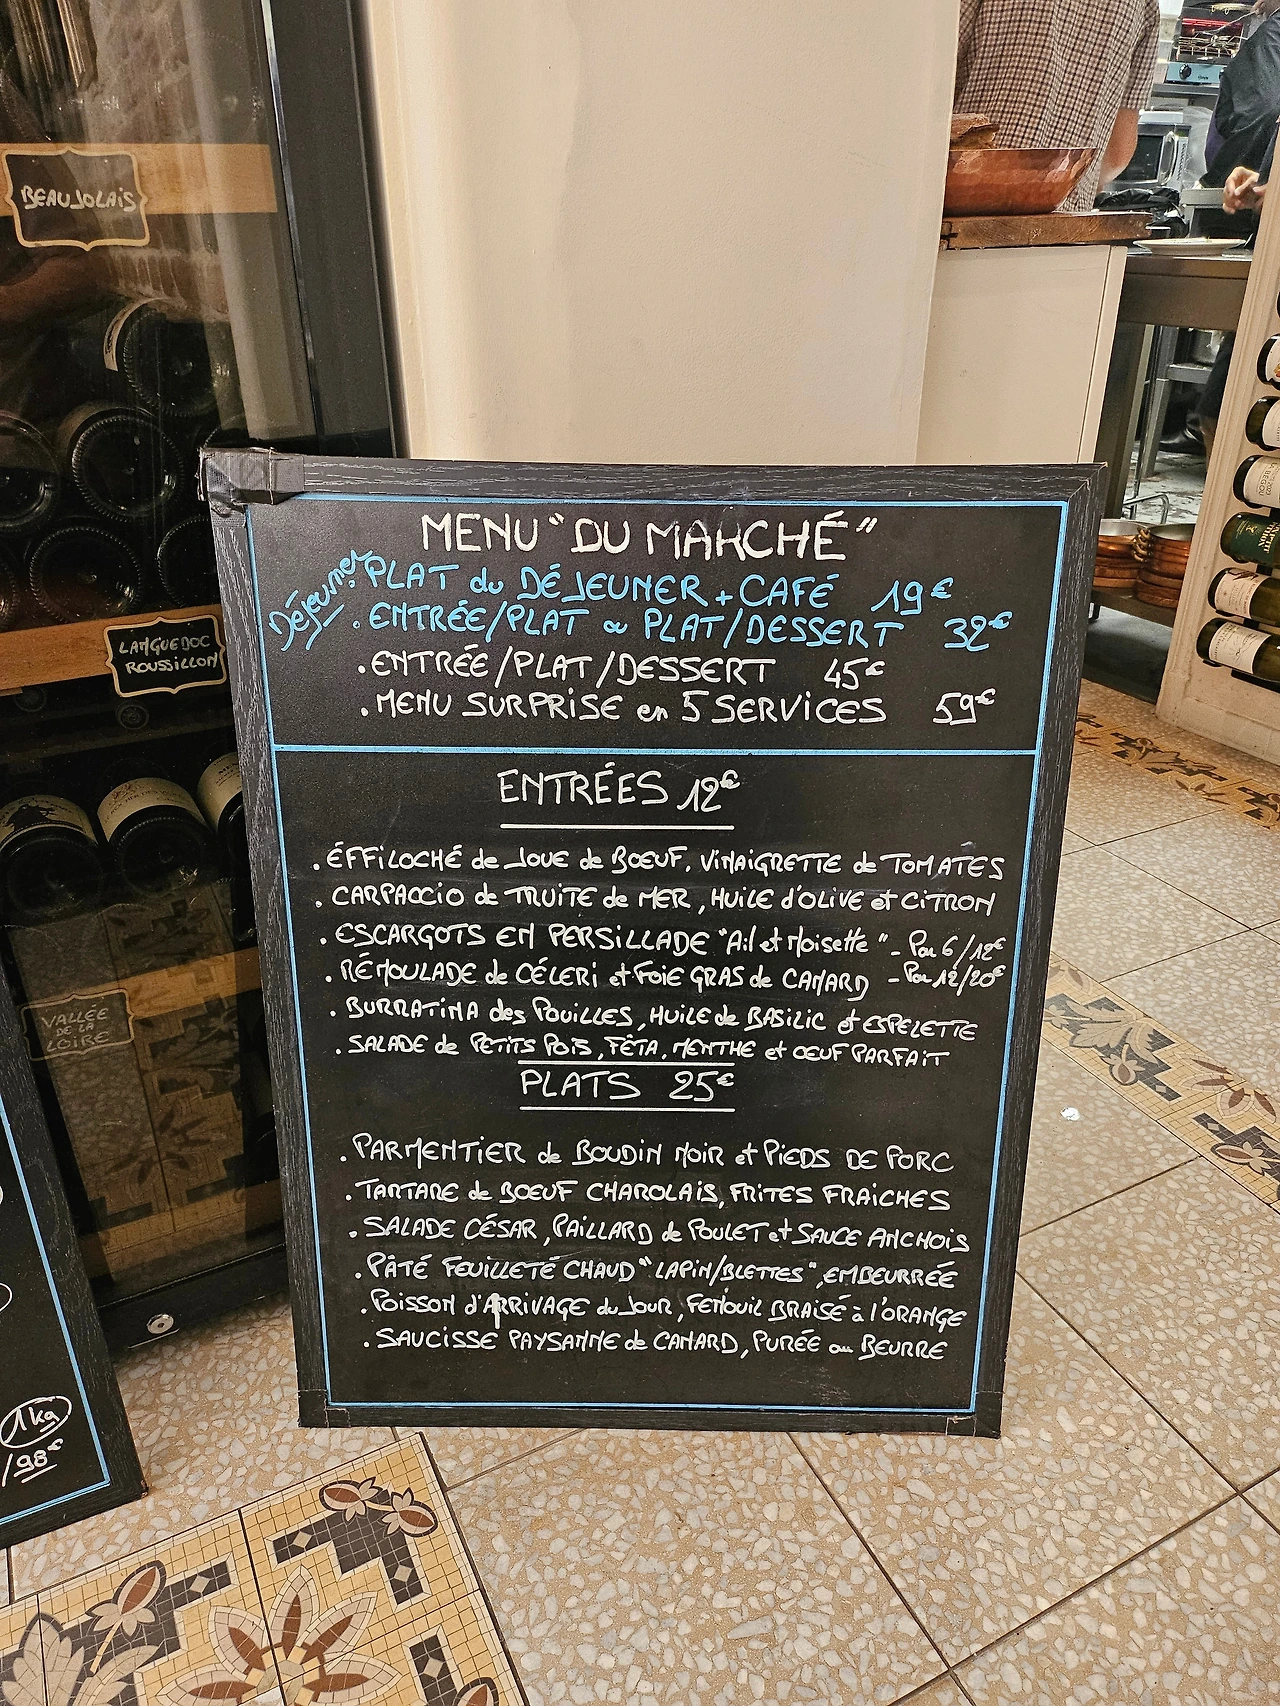 BEAUJOLAIS
LANGUEDOC
ROUSSILLON
VALLÉE
DE LA
LOIRE
MENU "DU MARCHÉ"
Déjeuner
. PLAT du DÉJEUNER + CAFÉ 19€
. ENTRÉE/PLAT ou PLAT/DESSERT 32€
. ENTRÉE/PLAT/DESSERT 45€
. MENU SURPRISE en 5 SERVICES 59€
ENTRÉES 12€
. ÉFFILOCHÉ de JOUE de BŒUF, VINAIGRETTE de TOMATES
. CARPACCIO de TRUITE de MER, HUILE d'OLIVE et CITRON
. ESCARGOTS EN PERSILLADE "Ail et Noisette" - Par 6/12€
- Par 12/20€
. RÉMOULADE de CÉLERI et FOIE GRAS de CANARD
. BURRATINA des POUILLES, HUILE de BASILIC et ESPELETTE
. SALADE de PETITS POIS, FÊTA, MENTHE et ŒUF PARFAIT
PLATS 25€
. PARMENTIER de BOUDIN NOIR et PIEDS DE PORC
. TARTARE de BŒUF CHAROLAIS, FRITES FRAICHES
. SALADE CÉSAR, PAILLARD de POULET et SAUCE ANCHOIS
. PÂTÉ FEUILLETÉ CHAUD "LAPIN/BLETTES", EMBEURRÉE
. POISSON d'ARRIVAGE du JOUR, FENOUIL BRAISÉ à l'ORANGE
. SAUCISSE PAYSANNE de CANARD, PURÉE au BEURRE
1kg
/98€